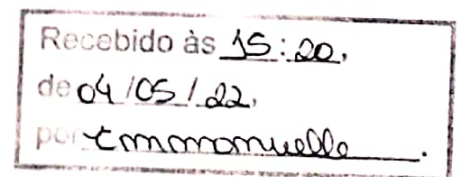 Recebido às 15:20,
de 04/05/22,
por Emmanuelle.